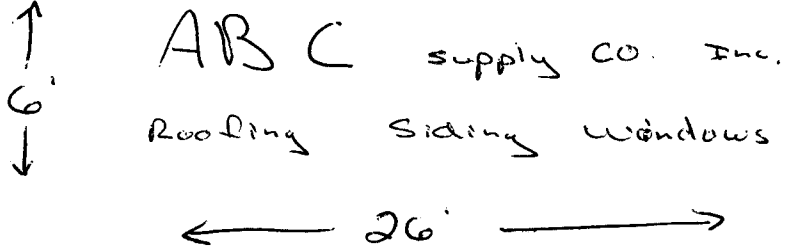 ABC supply CO. Inc.
6'
Roofing Siding Windows
26'